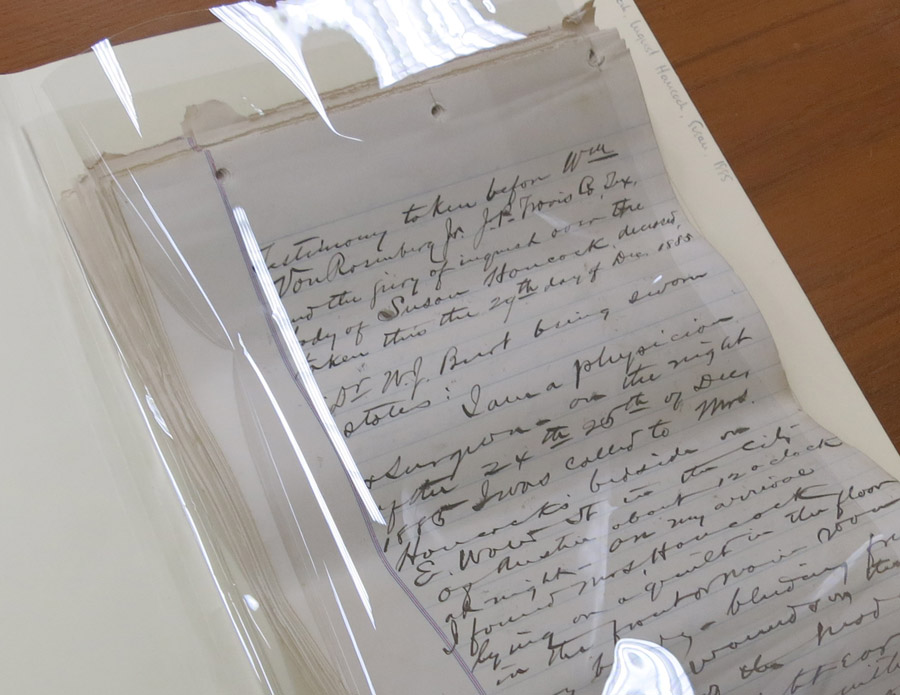 Testimony taken before Wm
Von Rosenberg Jr. J.P. Travis Co, Tex,
and the jury of inquest over the
body of Susan Hancock, deceased,
taken this the 29th day of Dec 1885
Dr W.J. Burt being sworn
states: I am a physician
& Surgeon - on the night
of the 24th 25th of Dec,
1885 I was called to Mrs.
Hancocks bedside on
E. Water St in the City
of Austin about 12 oclock
at night - on my arrival
I found Mrs Hancock
lying on a quilt in the floor
in the front or main room
bleeding
wounds in the
the
Hancock, Susan, 1885